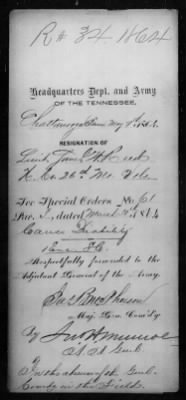 R # 34 1864
Headquarters Dept. and Army
OF THE TENNESSEE,
Chattanooga Tenn May 1864.
RESIGNATION OF
Lieut
K. Co 26th Mo. Vols
For Special Orders No. 61
Par. 2, dated March 1864
Cause Disability
Respectfully forwarded to the
Adjutant General of the Army.
Jas. B. McPherson
Maj. Gen. Com'd'g
By
A. A. Genl.
In the absence of the Genl.
Comdg in the Field.